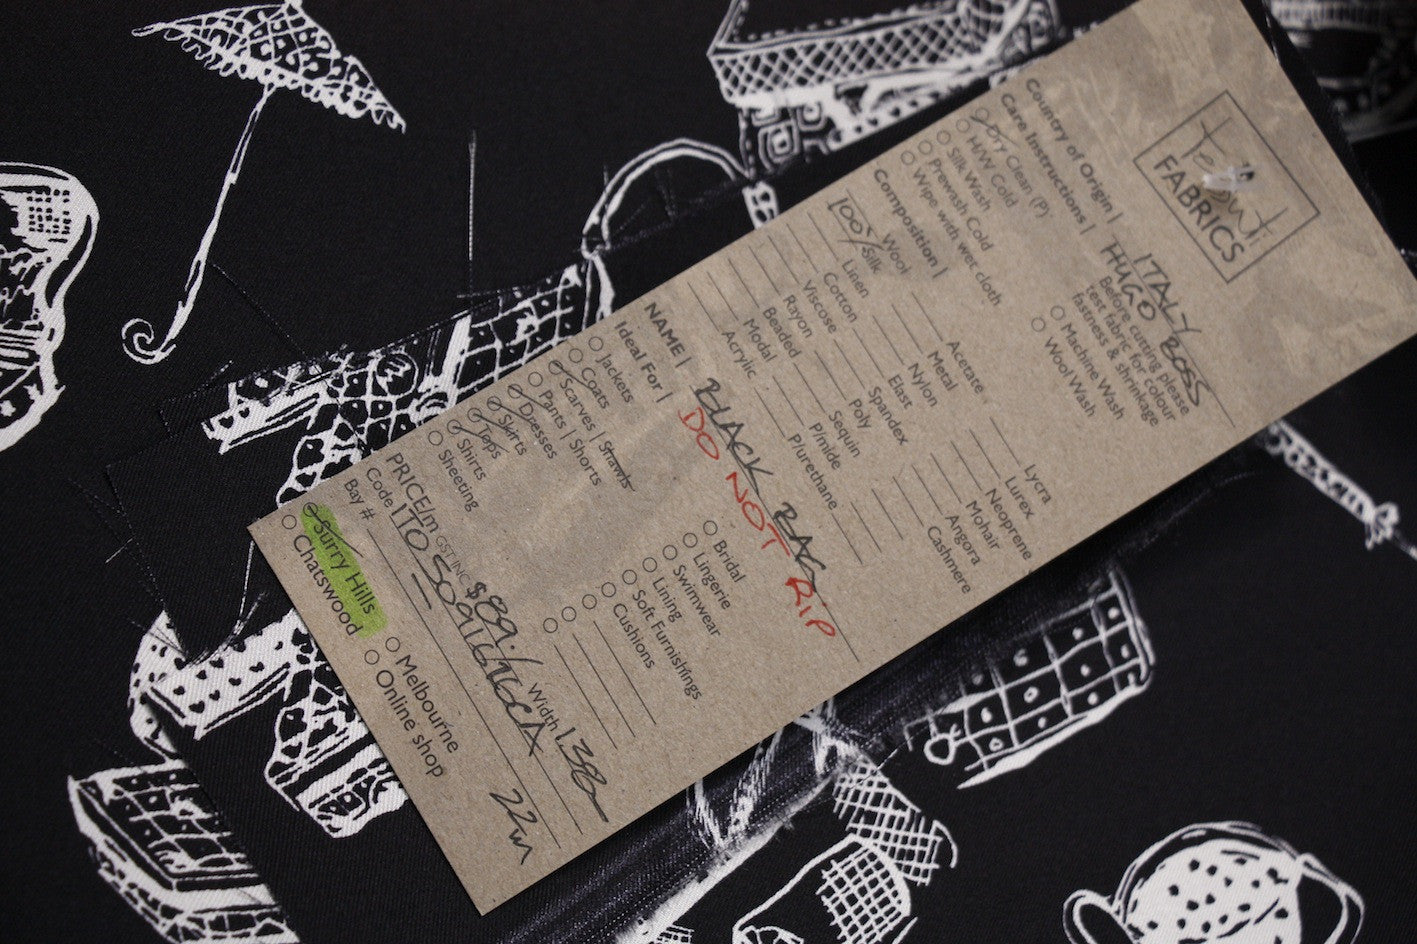 Tessuti
FABRICS
Country of Origin | ITALY
HUGO BOSS
Care Instructions |
Before cutting please
test fabric for colour
fastness & shrinkage
Dry Clean (P)
Machine Wash
H/W Cold
Wool Wash
Silk Wash
Prewash Cold
Wipe with wet cloth
Composition |
Wool
Acetate
Lycra
100% Silk
Metal
Lurex
Linen
Nylon
Neoprene
Cotton
Elast
Mohair
Viscose
Spandex
Angora
Rayon
Poly
Cashmere
Beaded
Sequin
Modal
P/mide
Acrylic
P/urethane
NAME | BLACK BAG
DO NOT RIP
Ideal For |
Jackets
Bridal
Coats
Lingerie
Scarves | Shawls
Swimwear
Pants | Shorts
Lining
Dresses
Soft Furnishings
Skirts
Cushions
Tops
Shirts
Sheeting
PRICE/m GST INC $89.- Width 138
Code
Bay #
22m
Surry Hills
Melbourne
Chatswood
Online shop